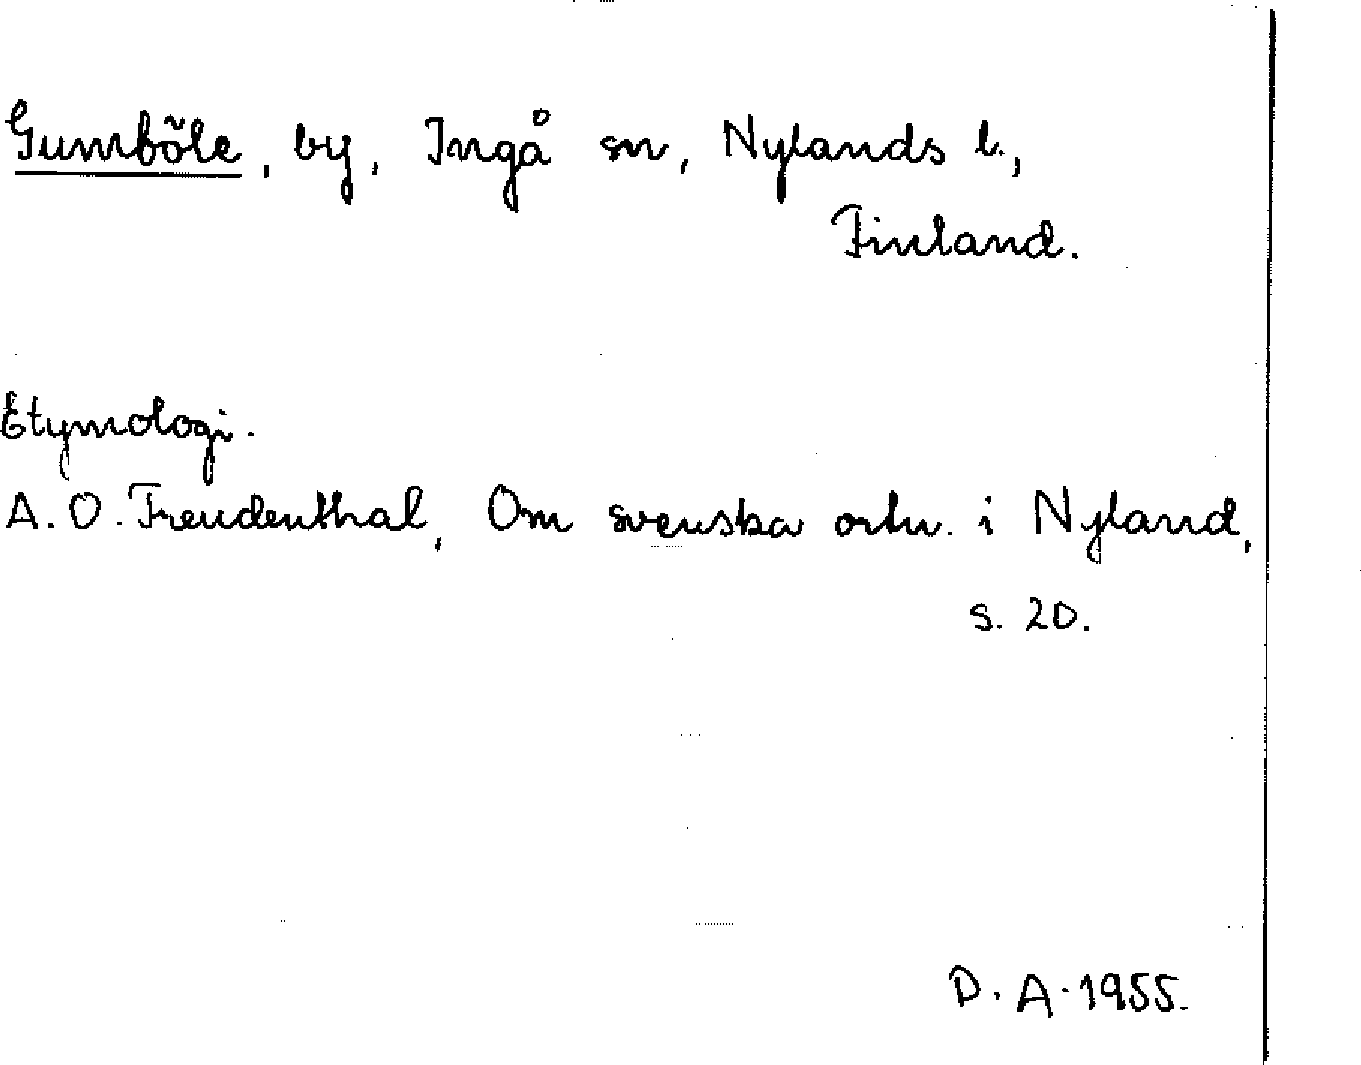 Gumböle, by, Ingå sn, Nylands l.,
Finland.
Etymologi.
A. O. Freudenthal, Om svenska ortn. i Nyland,
s. 20.
D. A. 1955.